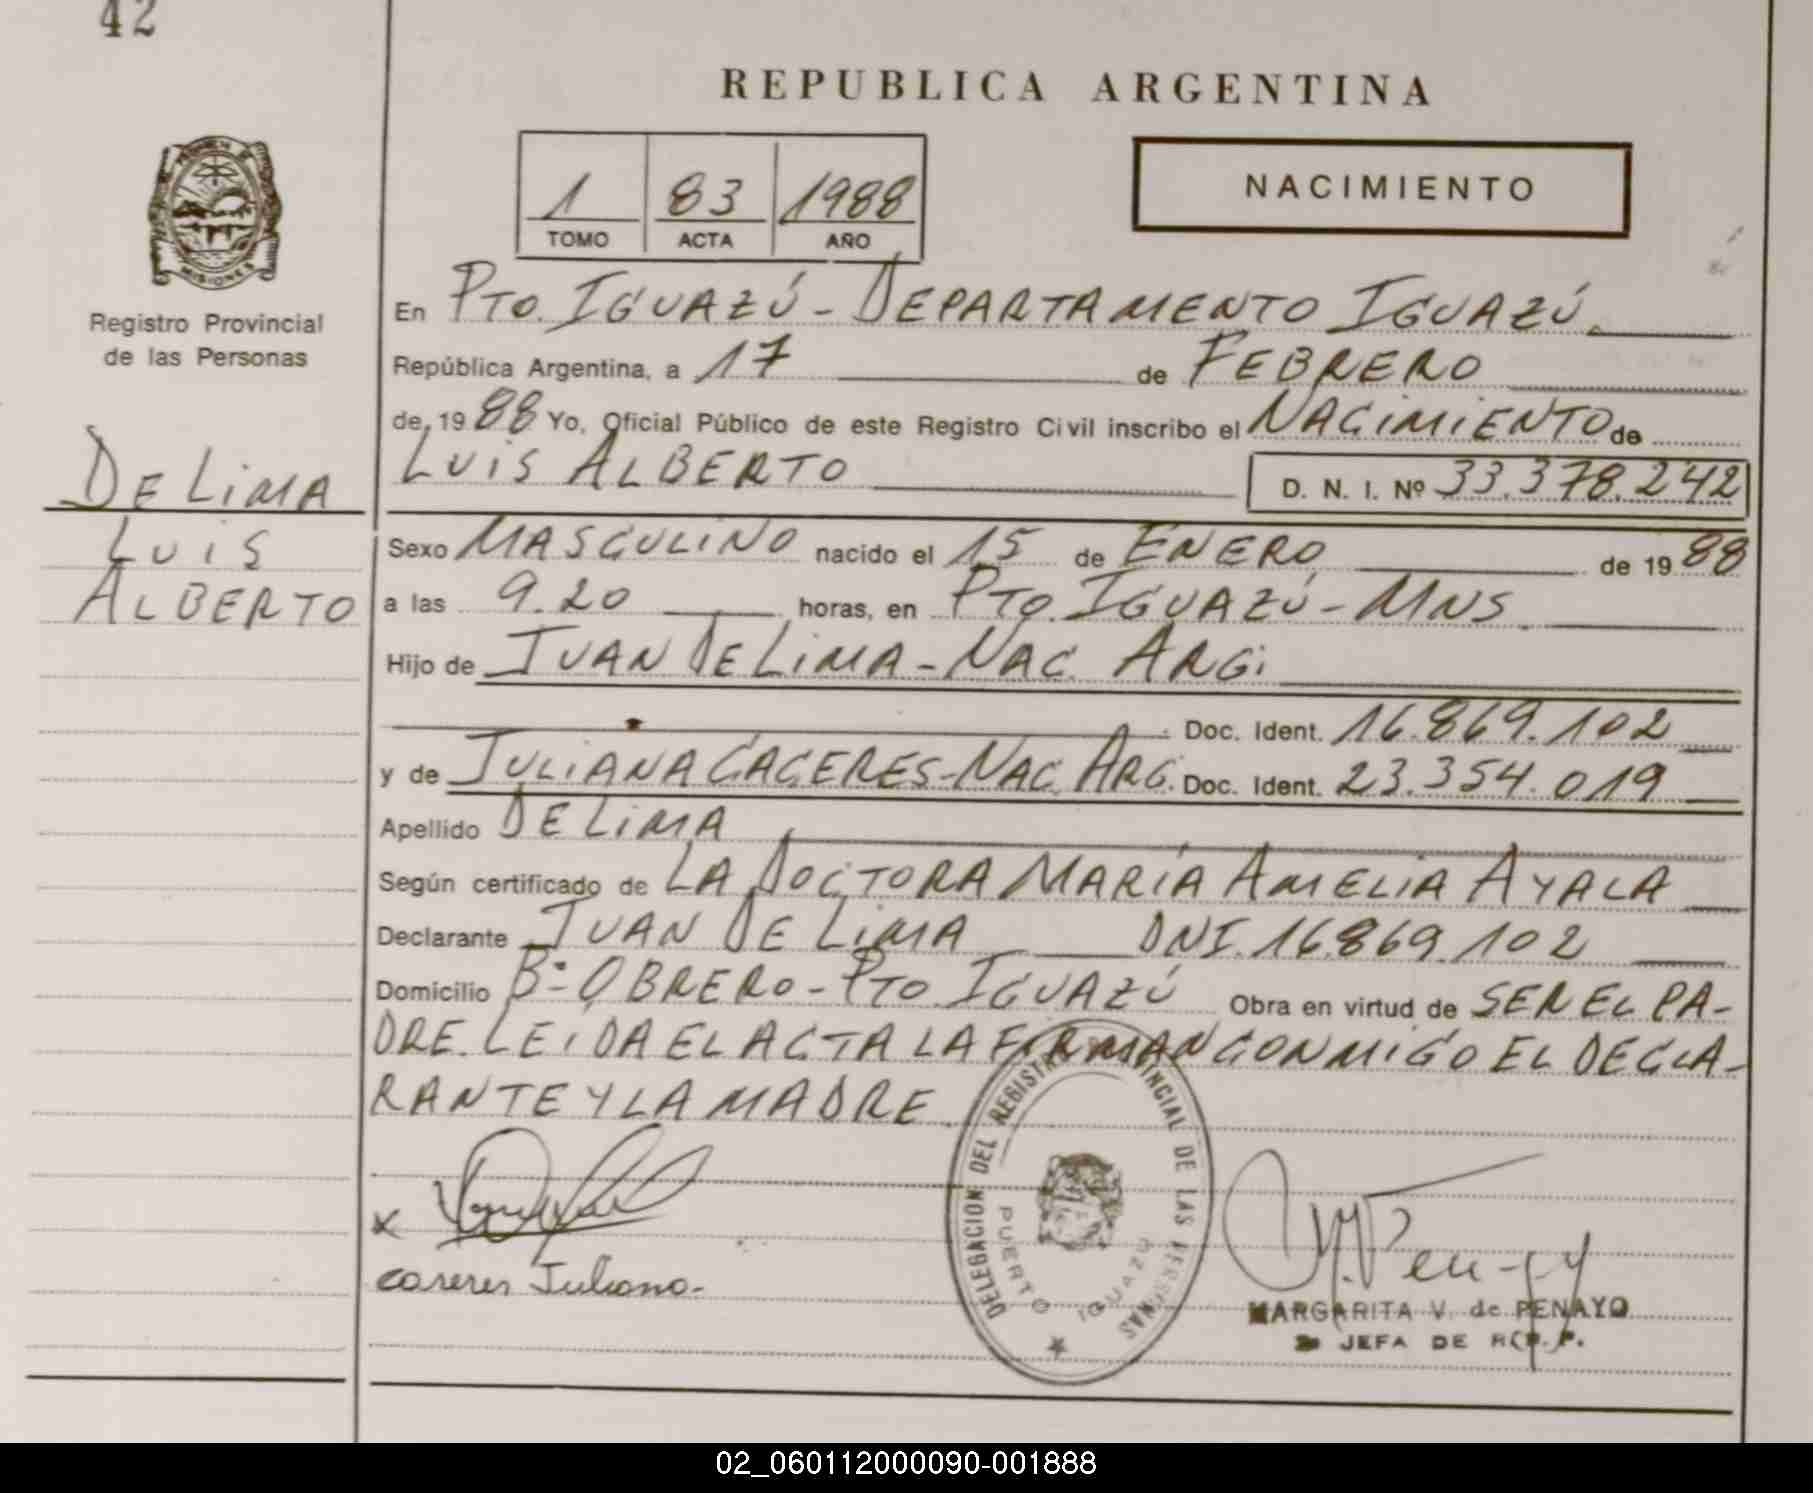 42
REPUBLICA ARGENTINA
MISIONES
Registro Provincial
de las Personas
1 83 1988
TOMO ACTA AÑO
NACIMIENTO
En PTO. IGUAZÚ - DEPARTAMENTO IGUAZÚ.
República Argentina, a 17 de FEBRERO
de 1988 Yo, Oficial Público de este Registro Civil inscribo el NACIMIENTO de
LUIS ALBERTO D. N. I. Nº 33.378.242
DE LIMA
LUIS
ALBERTO
Sexo MASCULINO nacido el 15 de ENERO de 1988
a las 9.20 horas, en PTO. IGUAZÚ - MNS.
Hijo de JUAN DE LIMA - NAC. ARG.
Doc. Ident. 16.869.102
y de JULIANA CACERES - NAC. ARG. Doc. Ident. 23.354.019
Apellido DE LIMA
Según certificado de LA DOCTORA MARÍA AMELIA AYALA
Declarante JUAN DE LIMA DNI. 16.869.102
Domicilio Bº OBRERO - PTO IGUAZÚ Obra en virtud de SER EL PA-
DRE. LEIDA EL ACTA LA FIRMAN CONMIGO EL DECLA-
RANTE Y LA MADRE.
DELEGACION DEL REGISTRO PROVINCIAL DE LAS PERSONAS
PUERTO IGUAZU
x
caseres Juliana-
MARGARITA V. de PENAYO
JEFA DE R.P.P.
02_060112000090-001888